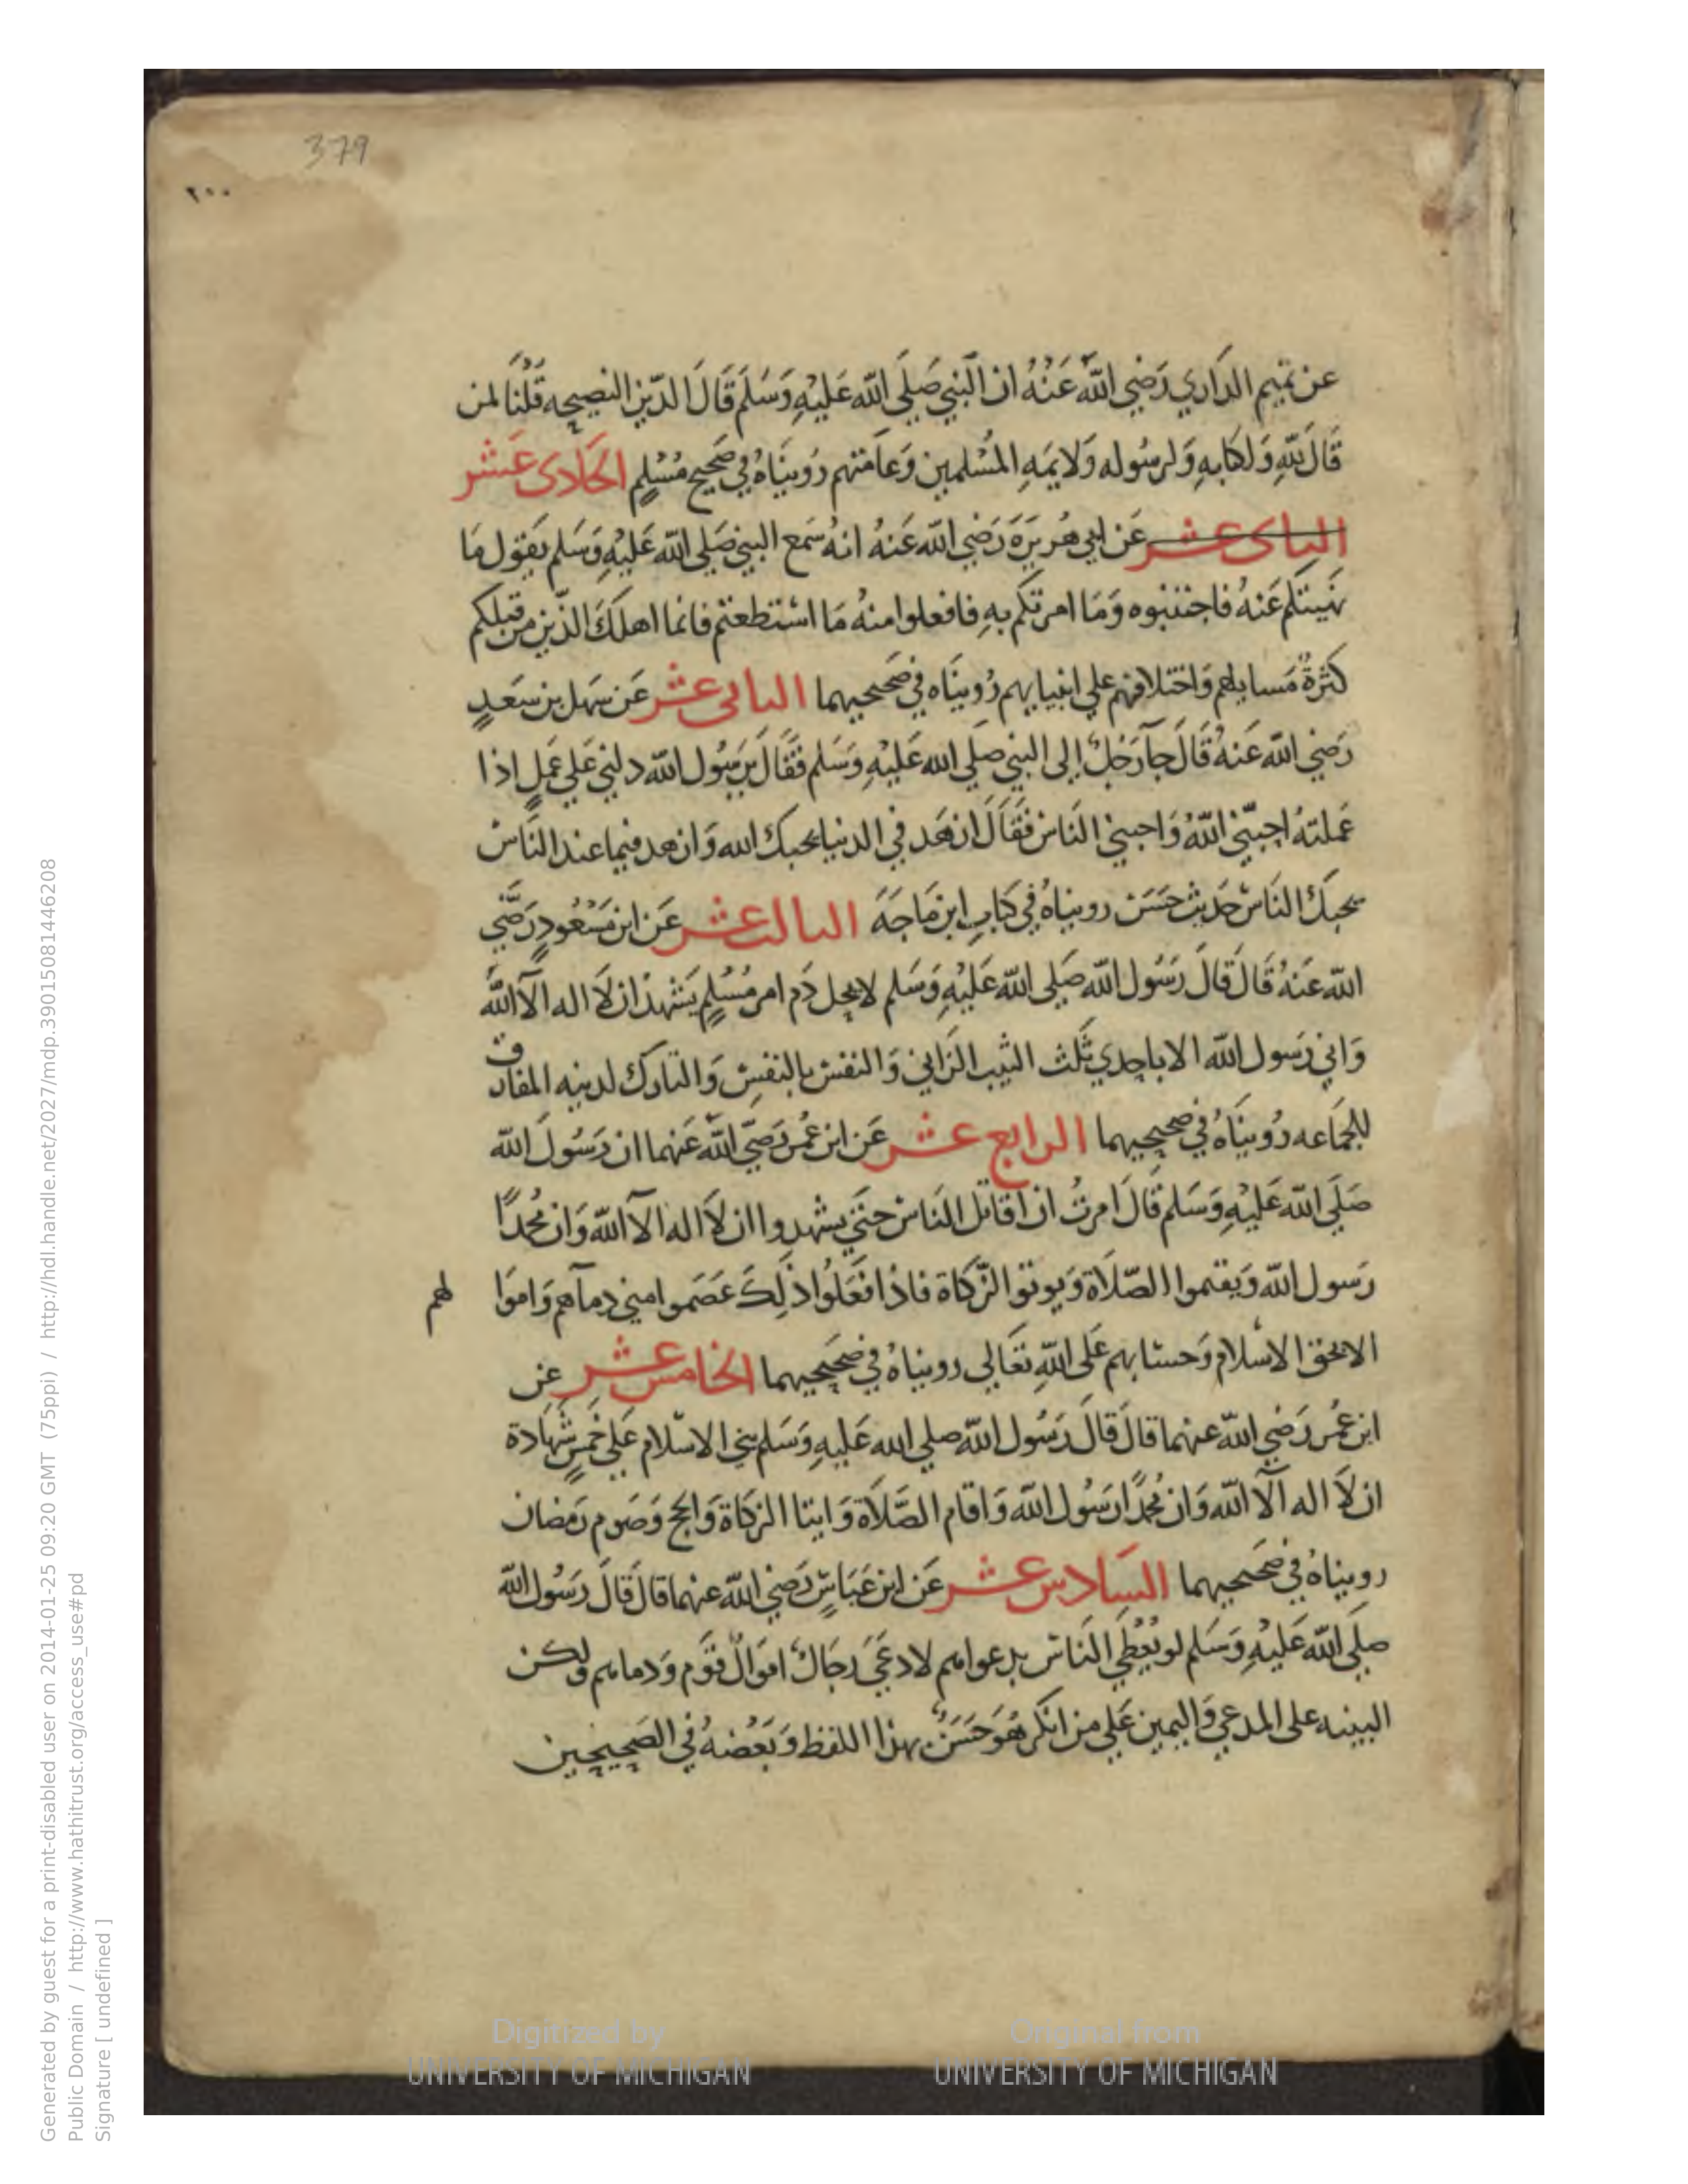 379
٢٠٠
عن تميم الداري رَضِي اللهُ عَنْهُ ان النبي صَلي الله عَليْهِ وَسَلم قَالَ الدّين النصيحه قُلْنَا لمن
قَالَ للهِ وَلكتابهِ وَلرسُوله وَلايمهِ المسْلمين وَعامتهم رُوينَاهُ في صَحيح مُسْلم الحَادى عَشر
الثانى عشر عَن ابي هُريرَة رَضي الله عَنهُ انهُ سَمع النبي صَلي الله عَليْهِ وَسَلم يَقول مَا
نهَيتكم عَنهُ فاجتنبوه وَمَا امرتكم بهِ فافعلوا منهُ مَا اسْتطعتم فانما اهلكَ الذين من قبلكم
كثرةُ مَسايلهم وَاختلافهم علي انبيايهم رُوينَاه في صَحيحيهما الثانى عشر عَن سَهل بن سَعدٍ
رَضي الله عَنهُ قَالَ جآ رَجلٌ إلى النبي صَلي الله عَليْهِ وَسَلم فقَالَ يرَسُول الله دلني عَلي عَملٍ اذا
عَملتهُ احبّني اللهُ وَاحبني النَاس فقَالَ ازهَد في الدنيا يحبك الله وَازهد فيما عند النَاس
يحبكَ النَاس حَديث حَسَن رويناهُ في كتابِ ابن مَاجَهَ الثالث عشر عَن ابن مَسْعُودٍ رَضي
الله عَنهُ قَالَ قَالَ رَسُول الله صَلي الله عَليْهِ وَسَلم لا يحل دَم امر مُسْلمٍ يَشهدُ ان لَا اله الا اللهُ
وَاني رَسول الله الا باحدي ثلَث الثيب الزَاني وَالنفس بالنفسِ وَالتارك لدينه المفارق
للجَماعه رُوينَاهُ في صحيحيهما الرابع عشر عَن ابن عُمر رَضي الله عَنهما ان رَسُولَ الله
صَلي الله عَليْهِ وَسَلم قَالَ امرتُ ان اقاتل النَاس حتي يشهدوا ان لَا اله الا الله وَان محُمدًا
رَسول الله وَيقيموا الصّلَاة وَيوتوا الزّكاة فاذا فعَلُوا ذلكَ عَصَموا مني دمآهم وَاموَا لهم
الا بحق الاسْلام وَحسَابهم عَلى اللهِ تعَالي رويناهُ في صَحيحيهما الخامس عشر عن
ابن عُمر رَضي الله عنهما قالَ قالَ رَسُول الله صلي الله عَليهِ وَسَلم بني الاسْلام عَلي خَمسٍ شهَادة
ان لَا اله الا الله وَان محُمدًا رَسُول الله وَاقام الصَّلَاة وَايتا الزكاة وَالحج وَصَوم رَمَضان
رويناهُ في صَحيحيهما السَادس عشر عَن ابن عَبَاسٍ رَضي الله عنهما قالَ قالَ رَسُول الله
صلي الله عَليْهِ وَسَلم لو يُعْطَي النَاس بدعواهم لادعَي رجَالٌ اموَالَ قوْم وَدماهم وَلكن
البينه على المدعي وَاليمين عَلي من انكر هُوَ حَسَنٌ بهذا اللفظ وَبَعْضهُ في الصَحيحين
Digitized by
UNIVERSITY OF MICHIGAN
Original from
UNIVERSITY OF MICHIGAN
Generated by guest for a print-disabled user on 2014-01-25 09:20 GMT (75ppi) / http://hdl.handle.net/2027/mdp.39015081446208
Public Domain / http://www.hathitrust.org/access_use#pd
Signature [ undefined ]